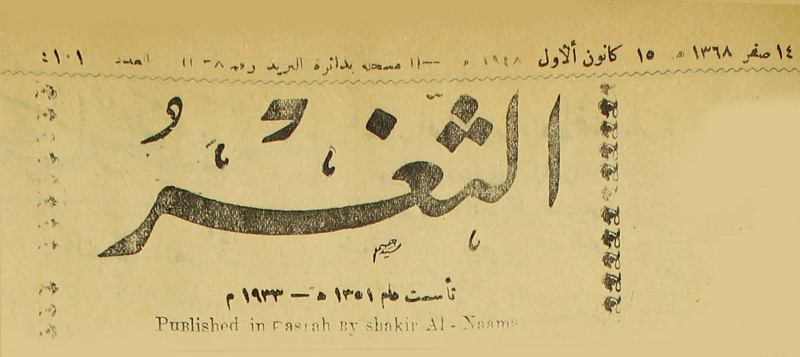 ١٤ صفر ١٣٦٨ هـ ١٥ كانون الأول ١٩٤٨ م مسجلة بدائرة البريد رقم العدد ٤١٠١
الثَّغْرُ
تأسست عام ١٣٥١ ه — ١٩٣٣ م
Published in Basrah By shakir Al - Naama